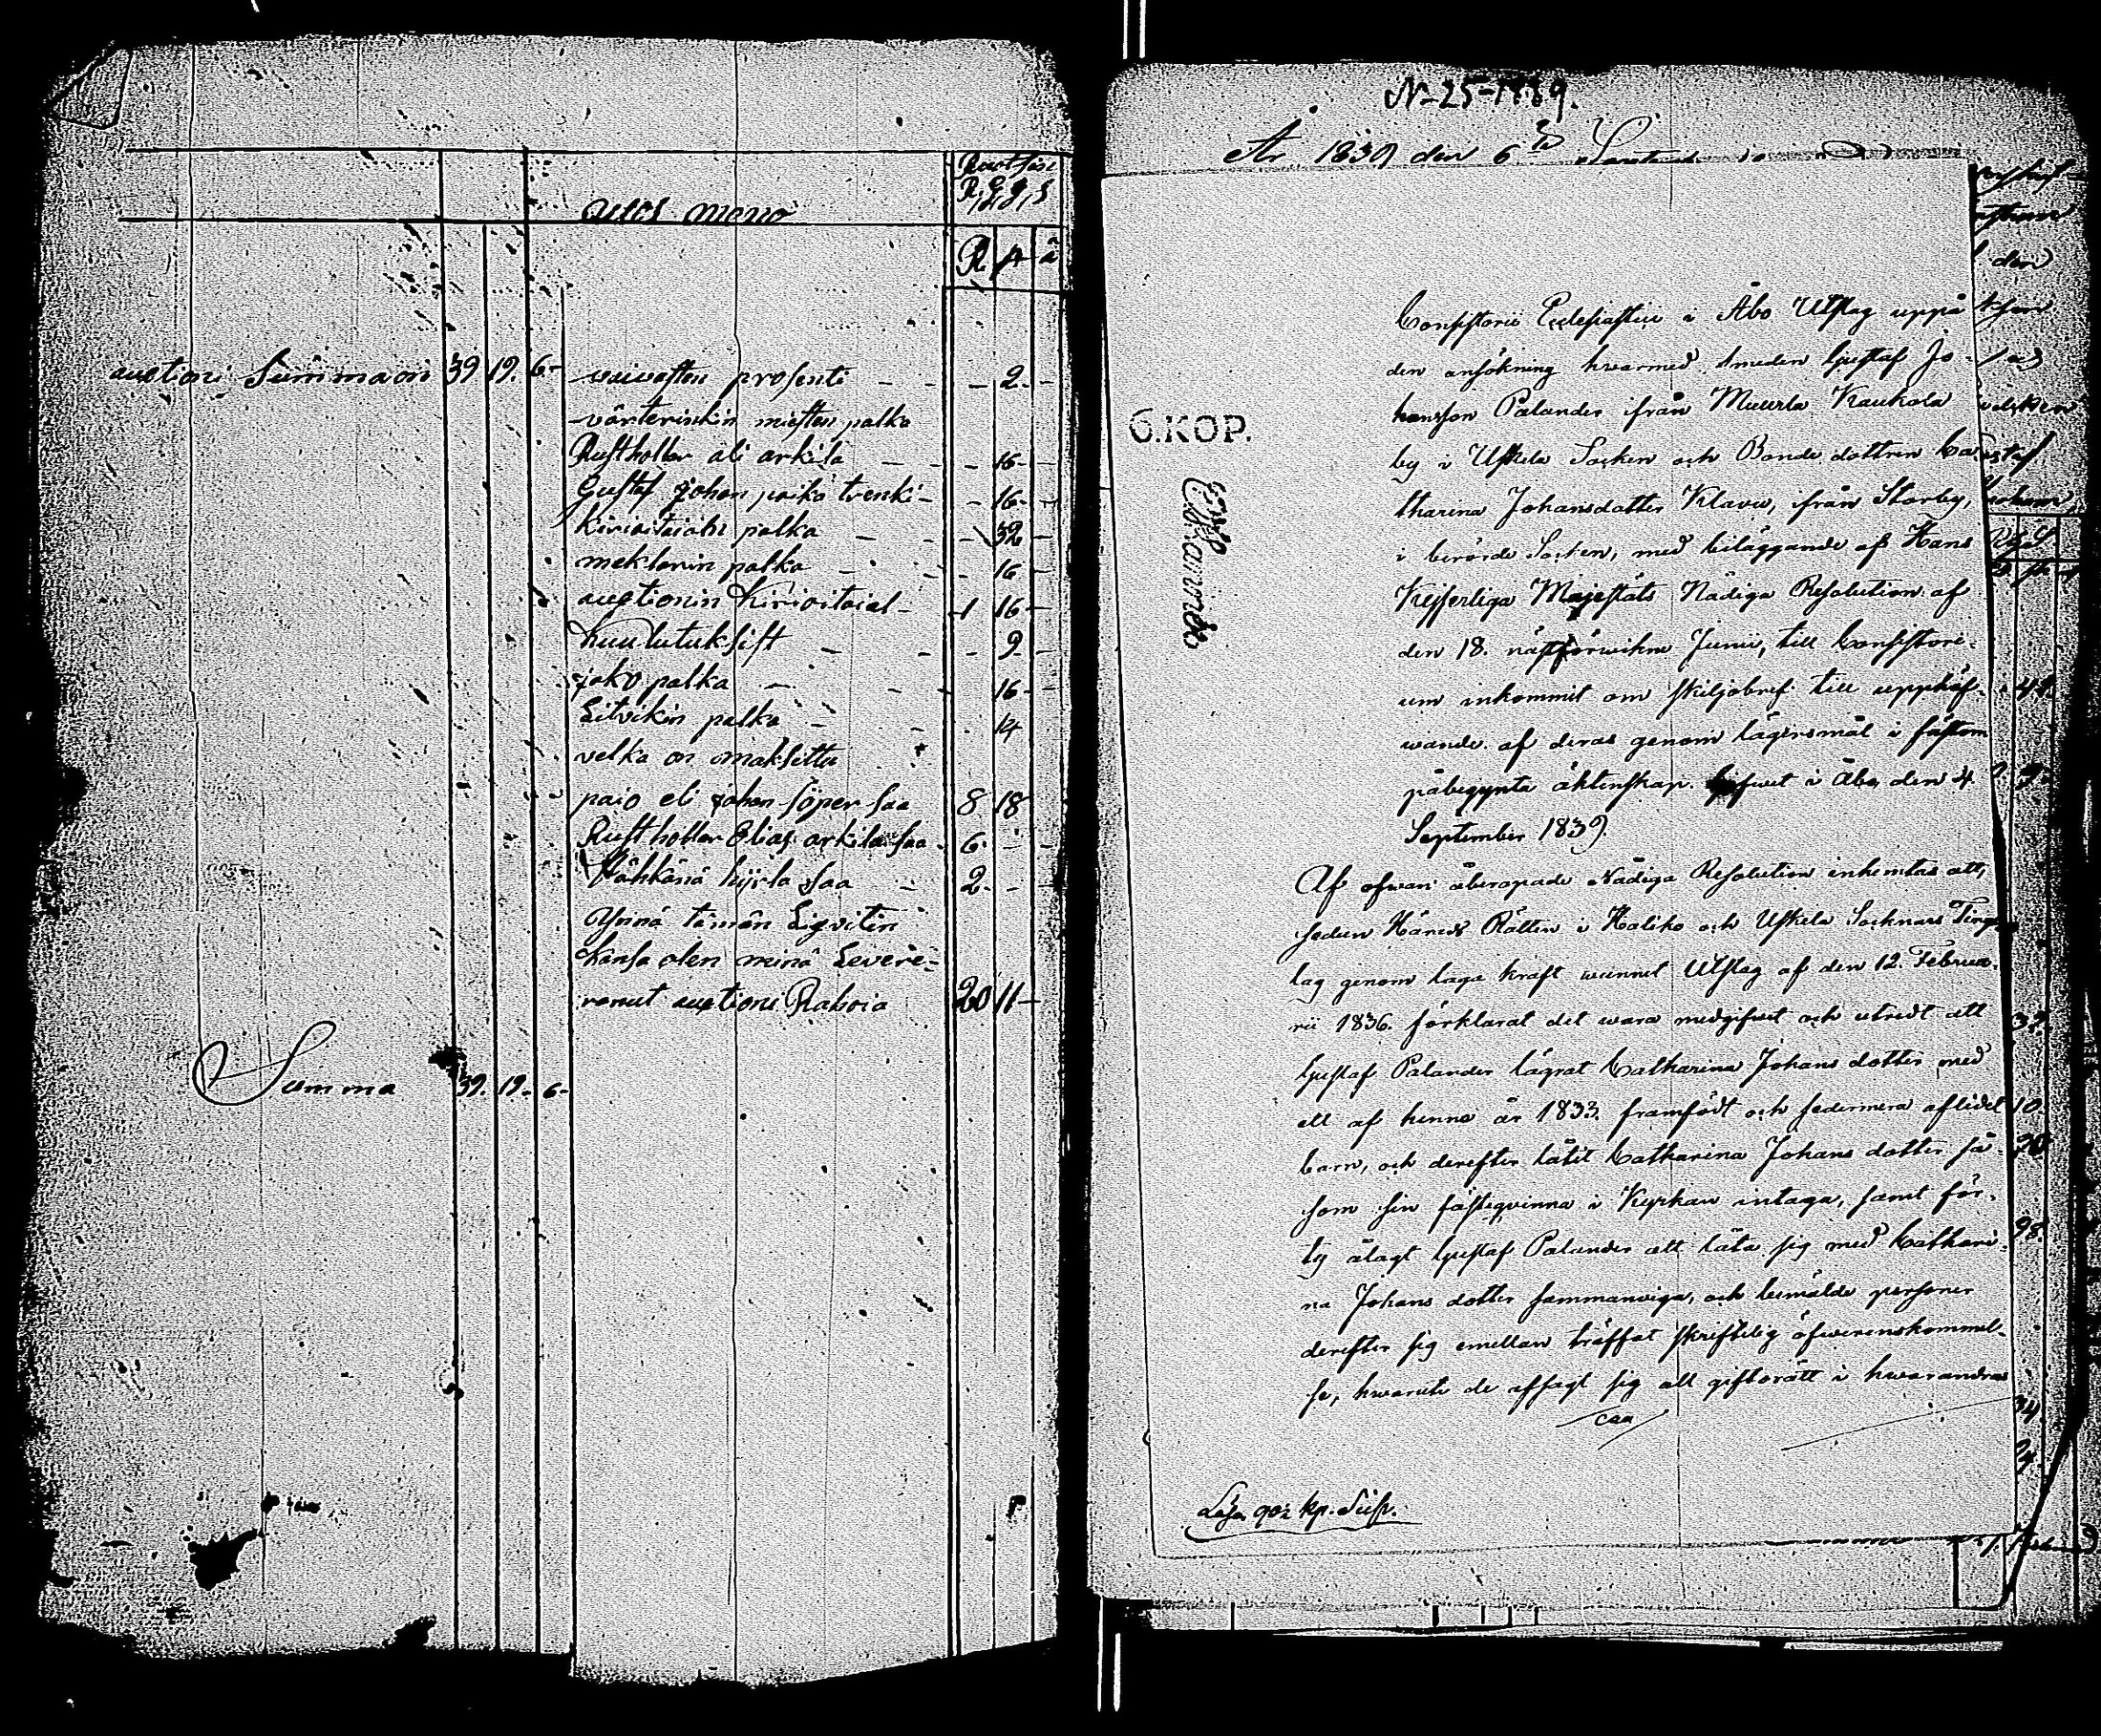 ulos meno
R
auctioni Summaon 39 19. 6- vaivasten prosenti - - - 2. -
värterinkin miesten palka
Rusthollar ali arkila - - - 16 -
Gustaf Johan poika trenki - - 16 -
kirioitaian palka - - - 32 -
meklarin palka - - - 16 -
auctionin kirioitaial - 1 16 -
kuulutuksist - - - 9 -
jako palka - - 16 -
Litvikin palka - - 14
velka on omaksittu
paio eli Johan Söper saa 8 18
Rusthollar Elias arkila saa - 6. - -
Hähkänä hijrla saa - 2. - -
Ynnä tämän Liqvitin
kansa olen minä Levere-
ranut auctioni Rahoia 20 11 -
Summa 39. 19. 6-
N-25-1839.
År 1839 den 6te
Consistorii Ecclesiastici i Åbo Utslag uppå
den ansökning hvarmed Smeden Gustaf Jo-
hansson Palander ifrån Muurla Kaukola
by i Uskela Socken och Bonde dottren Ca-
tharina Johansdotter Klavu, ifrån Storby,
i berörde Socken, med biläggande af Hans
Kejserliga Majestäts Nådiga Resolution af
den 18. nästförwikne Junii, till Consistori-
um inkommit om skiljobref till upphäf-
wande af deras genom lägersmål i fästom
påbegynta äktenskap. Gifwet i Åbo den 4
September 1839.
6.KOP.
Af ofwan åberopade Nådiga Resolution inhemtas att,
sedan Härads Rätten i Haliko och Uskela Socknars Tings
lag genom laga kraft wunnet Utslag af den 12. Februa-
rii 1836. förklarat det wara medgifwet och utredt att
Gustaf Palander lägrat Catharina Johans dotter med
ett af henne år 1833. framfödt och sedermera aflidet
barn, och derefter låtit Catharina Johans dotter så-
som sin fästeqvinna i Kyrkan intaga, samt för-
ty ålagt Gustaf Palander att låta sig med Cathari-
na Johans dotter sammanviga, och bemälde personer
derefter sig emellan träffat skriftelig öfwerenskommel-
se, hwaruti de afsagt sig all giftorätt i hwarandras